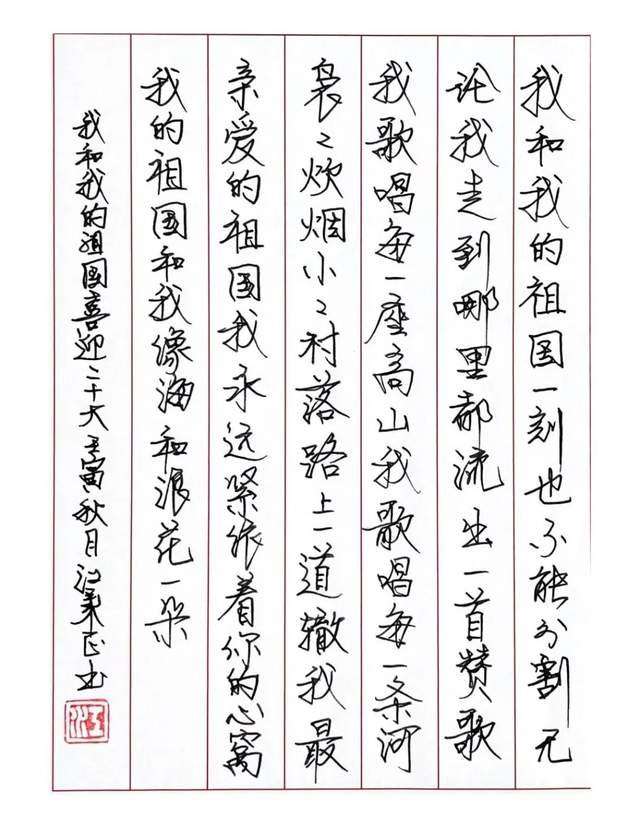 我和我的祖国一刻也不能分割无
论我走到哪里都流出一首赞歌
我歌唱每一座高山我歌唱每一条河
袅〻炊烟小〻村落路上一道辙我最
亲爱的祖国我永远紧依着你的心窝
我的祖国和我像海和浪花一朵
我和我的祖国喜迎二十大壬寅秋月江秉正书
江